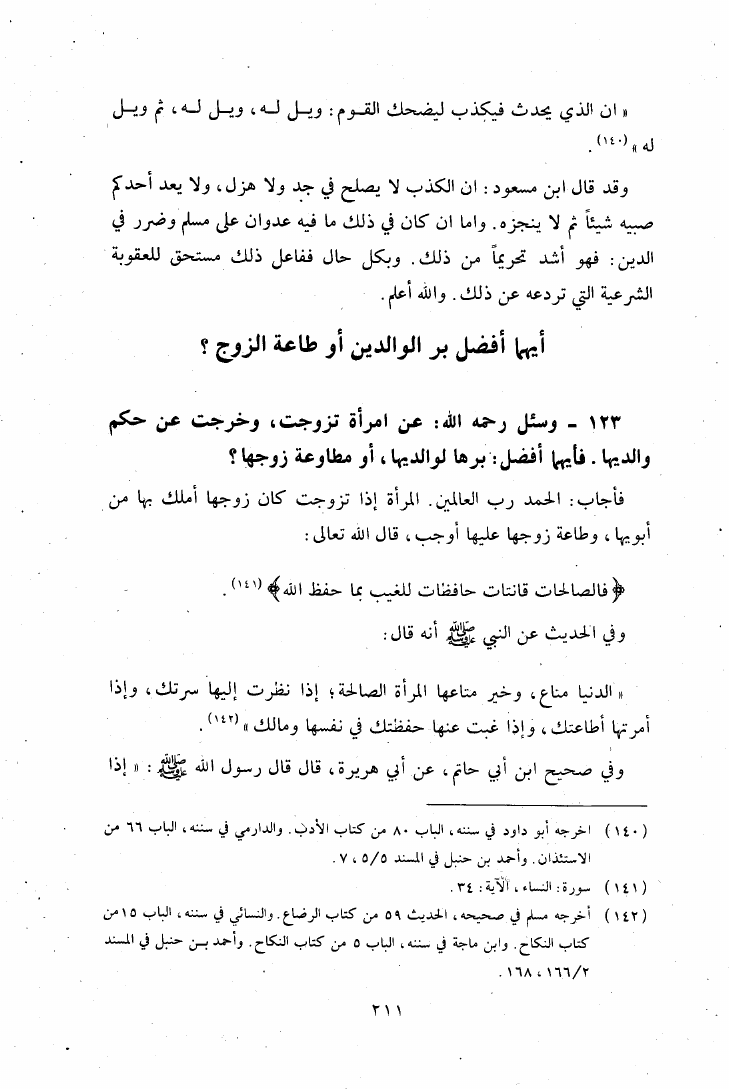 « ان الذي يحدث فيكذب ليضحك القوم : ويل له ، ويل له ، ثم ويل
له » (١٤٠) .
وقد قال ابن مسعود : ان الكذب لا يصلح في جد ولا هزل ، ولا يعد أحدكم
صبيه شيئاً ثم لا ينجزه . واما ان كان في ذلك ما فيه عدوان على مسلم وضرر في
الدين : فهو أشد تحريماً من ذلك . وبكل حال ففاعل ذلك مستحق للعقوبة
الشرعية التي تردعه عن ذلك . والله أعلم .
أيهما أفضل بر الوالدين أو طاعة الزوج ؟
١٢٣ - وسئل رحمه الله : عن امرأة تزوجت ، وخرجت عن حكم
والديها . فأيهما أفضل : برها لوالديها ، أو مطاوعة زوجها ؟
فأجاب : الحمد رب العالمين . المرأة إذا تزوجت كان زوجها أملك بها من
أبويها ، وطاعة زوجها عليها أوجب ، قال الله تعالى :
﴿ فالصالحات قانتات حافظات للغيب بما حفظ الله ﴾ (١٤١) .
وفي الحديث عن النبي ﷺ أنه قال :
« الدنيا متاع ، وخير متاعها المرأة الصالحة ؛ إذا نظرت إليها سرتك ، وإذا
أمرتها أطاعتك ، وإذا غبت عنها حفظتك في نفسها ومالك » (١٤٢) .
وفي صحيح ابن أبي حاتم ، عن أبي هريرة ، قال قال رسول الله ﷺ : « إذا
(١٤٠) اخرجه أبو داود في سننه ، الباب ٨٠ من كتاب الأدب . والدارمي في سننه ، الباب ٦٦ من
الاستئذان . وأحمد بن حنبل في المسند ٥/٥ ، ٧ .
(١٤١) سورة : النساء ، الآية : ٣٤ .
(١٤٢) أخرجه مسلم في صحيحه ، الحديث ٥٩ من كتاب الرضاع . والنسائي في سننه ، الباب ١٥ من
كتاب النكاح . وابن ماجة في سننه ، الباب ٥ من كتاب النكاح . وأحمد بن حنبل في المسند
١٦٦/٢ ، ١٦٨ .
٢١١